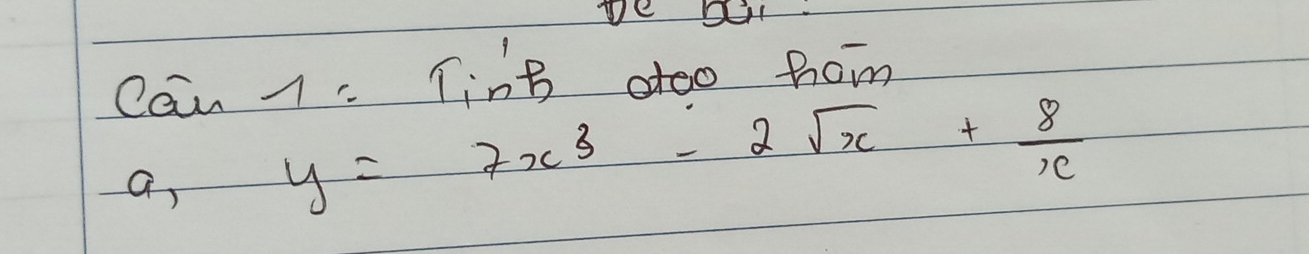 Đề bài:
Câu 1: Tính đạo hàm
a, y = 7x³ - 2√x + 8/x